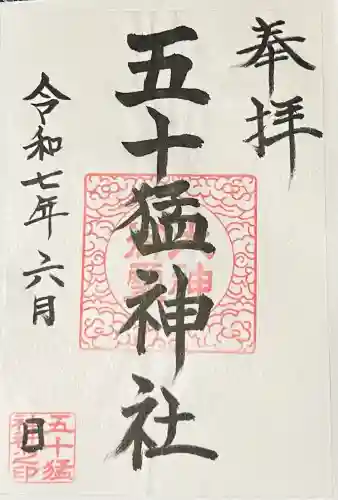 奉拝
五十猛神社
令和七年六月
日
五十猛
神社之印